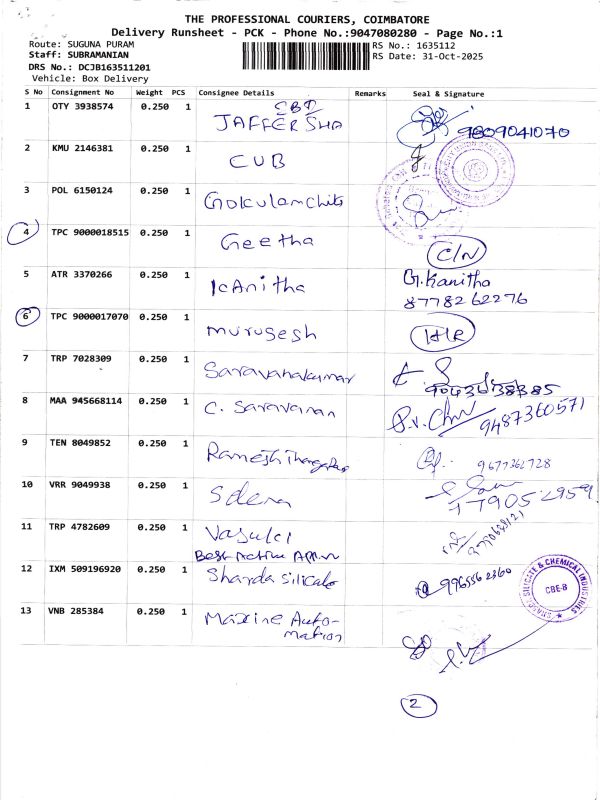 THE PROFESSIONAL COURIERS, COIMBATORE
Delivery Runsheet - PCK - Phone No.:9047080280 - Page No.:1
Route: SUGUNA PURAM
RS No.: 1635112
Staff: SUBRAMANIAN
RS Date: 31-Oct-2025
DRS No.: DCJB163511201
Vehicle: Box Delivery
S No Consignment No Weight PCS Consignee Details Remarks Seal & Signature
1 OTY 3938574 0.250 1 SBI
JAFFER SHA 9809041070
2 KMU 2146381 0.250 1 CUB
3 POL 6150124 0.250 1 Gokulam Chits
4 TPC 9000018515 0.250 1 Geetha C/N
5 ATR 3370266 0.250 1 KAnitha G.Kanitha
8778262276
6 TPC 9000017070 0.250 1 murugesh
7 TRP 7028309 0.250 1 Saravanakumar
8 MAA 945668114 0.250 1 C. Saravanan 9487360571
9 TEN 8049852 0.250 1 Ramesh 9677362728
10 VRR 9049938 0.250 1
11 TRP 4782609 0.250 1 Vasuki
Best
12 IXM 509196920 0.250 1 Sharda Silicate 9965562360
SILICATE & CHEMICAL INDUSTRIES
CBE-8
13 VNB 285384 0.250 1 Maxine Auto-
mation
2